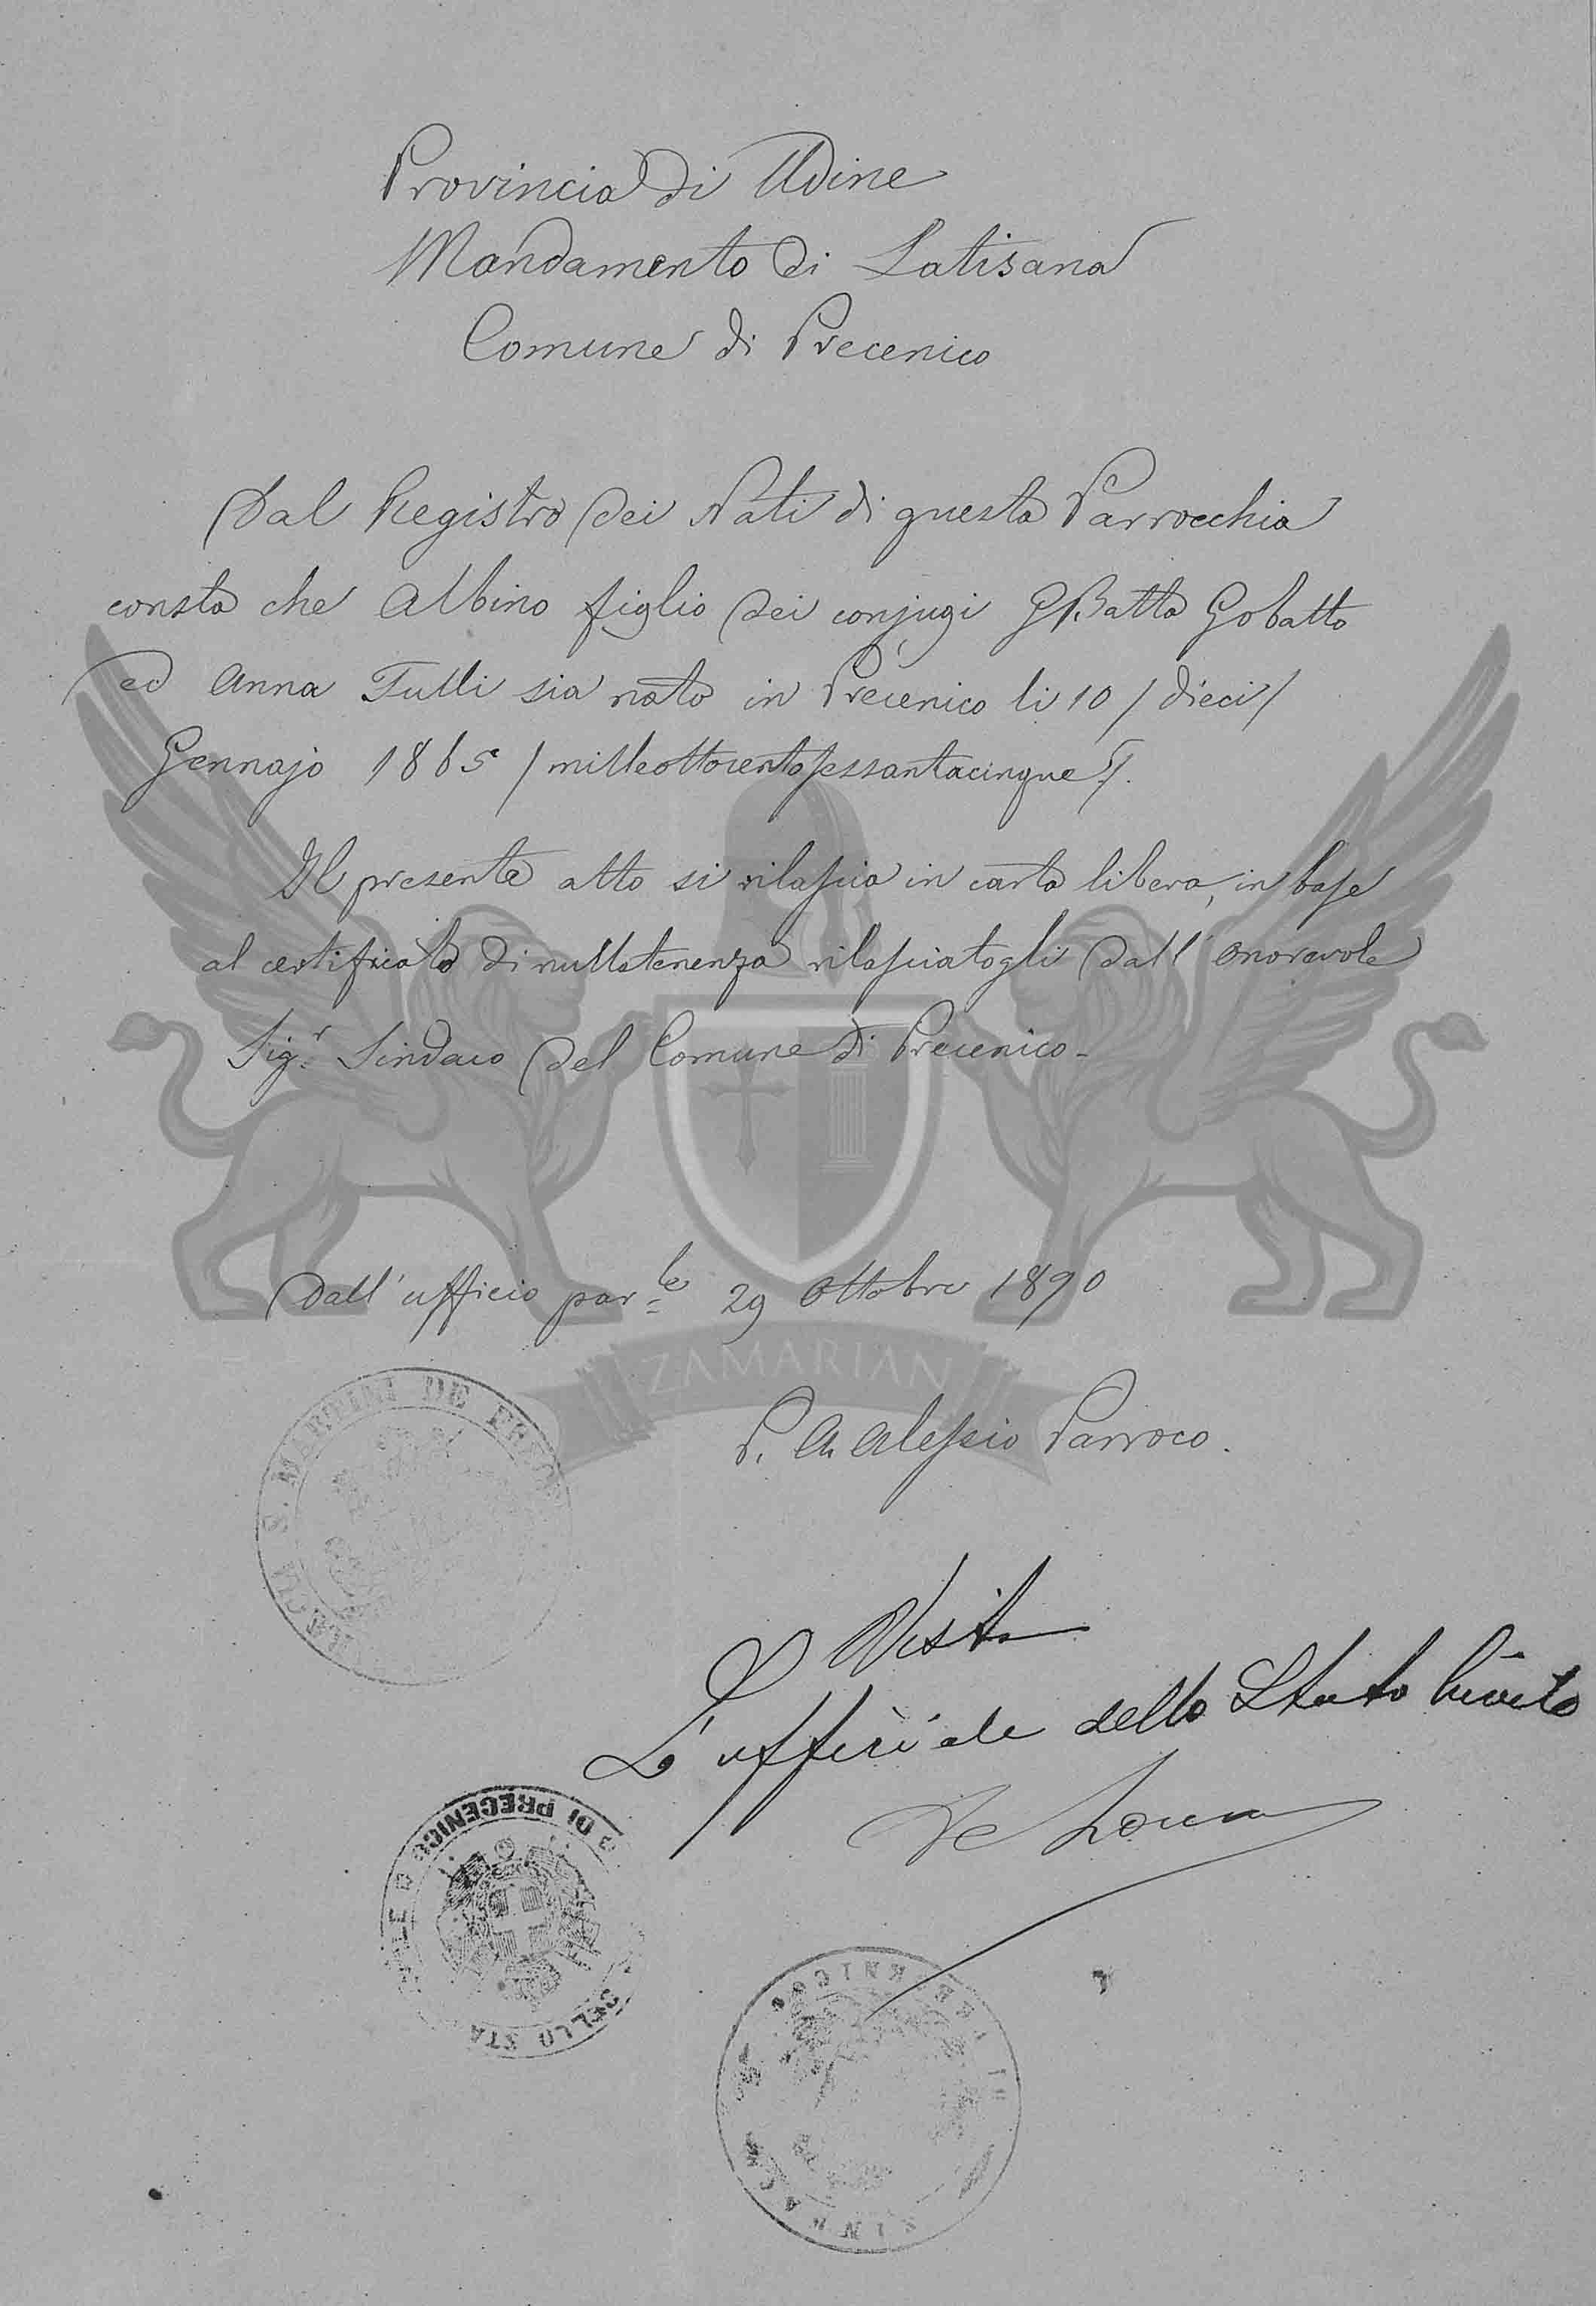 Provincia di Udine
Mandamento di Latisana
Comune di Precenico
Dal Registro dei Nati di questa Parrocchia
consta che Albino figlio dei conjugi GBatta Gobatto
ed Anna Tulli sia nato in Precenico li 10 / dieci /
Gennajo 1865 / milleottocentosessantacinque /.
Il presente atto si rilascia in carta libera, in base
al certificato di nullatenenza rilasciatogli dall' onorevole
Sig.r Sindaco del Comune di Precenico -
Dall' ufficio par.le 29 Ottobre 1890
ZAMARIAN
P. A. Alessio Parroco.
S. MARTINI DE
Visto
L' uffiziale dello Stato Civile
De
DI PRECENICO
DELLO STA